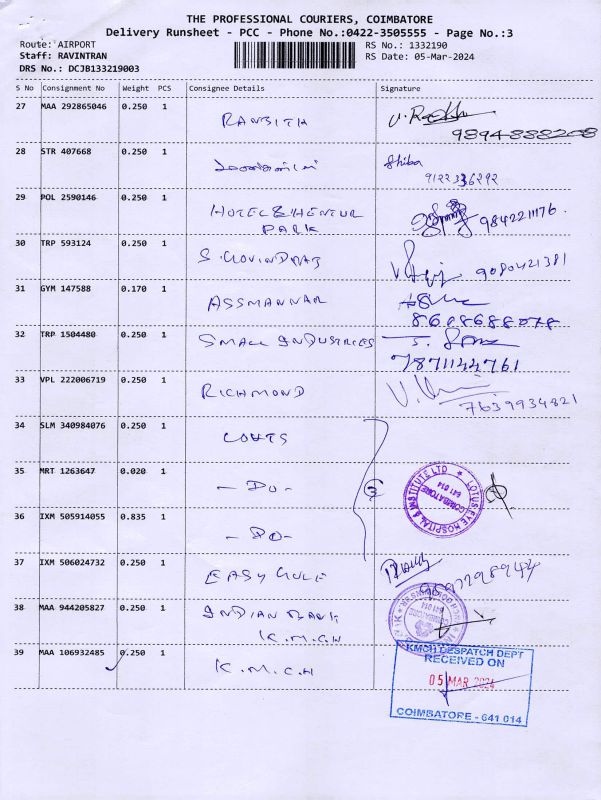 THE PROFESSIONAL COURIERS, COIMBATORE
Delivery Runsheet - PCC - Phone No.:0422-3505555 - Page No.:3
Route: AIRPORT RS No.: 1332190
Staff: RAVINTRAN RS Date: 05-Mar-2024
DRS No.: DCJB133219003
S No Consignment No Weight PCS Consignee Details Signature
27 MAA 292865046 0.250 1
RANJITH
9894888208
28 STR 407668 0.250 1
Shiba
9122336292
29 POL 2590146 0.250 1
HOTEL
PARK
9842211176.
30 TRP 593124 0.250 1
9080421381
31 GYM 147588 0.170 1
ASSMANNAR
8608688078
32 TRP 1504480 0.250 1
SMALL INDUSTRIES
7871144761
33 VPL 222006719 0.250 1
RICHMOND
7639934821
34 SLM 340984076 0.250 1
35 MRT 1263647 0.020 1
- DO -
LOTUS EYE HOSPITAL & INSTITUTE LTD
COIMBATORE
641 014
36 IXM 505914055 0.835 1
- DO -
37 IXM 506024732 0.250 1
38 MAA 944205827 0.250 1
INDIAN BANK
K.M.C.H
641 014
39 MAA 106932485 0.250 1
K.M.C.H
KMCH DESPATCH DEPT
RECEIVED ON
05 MAR 2024
COIMBATORE - 641 014